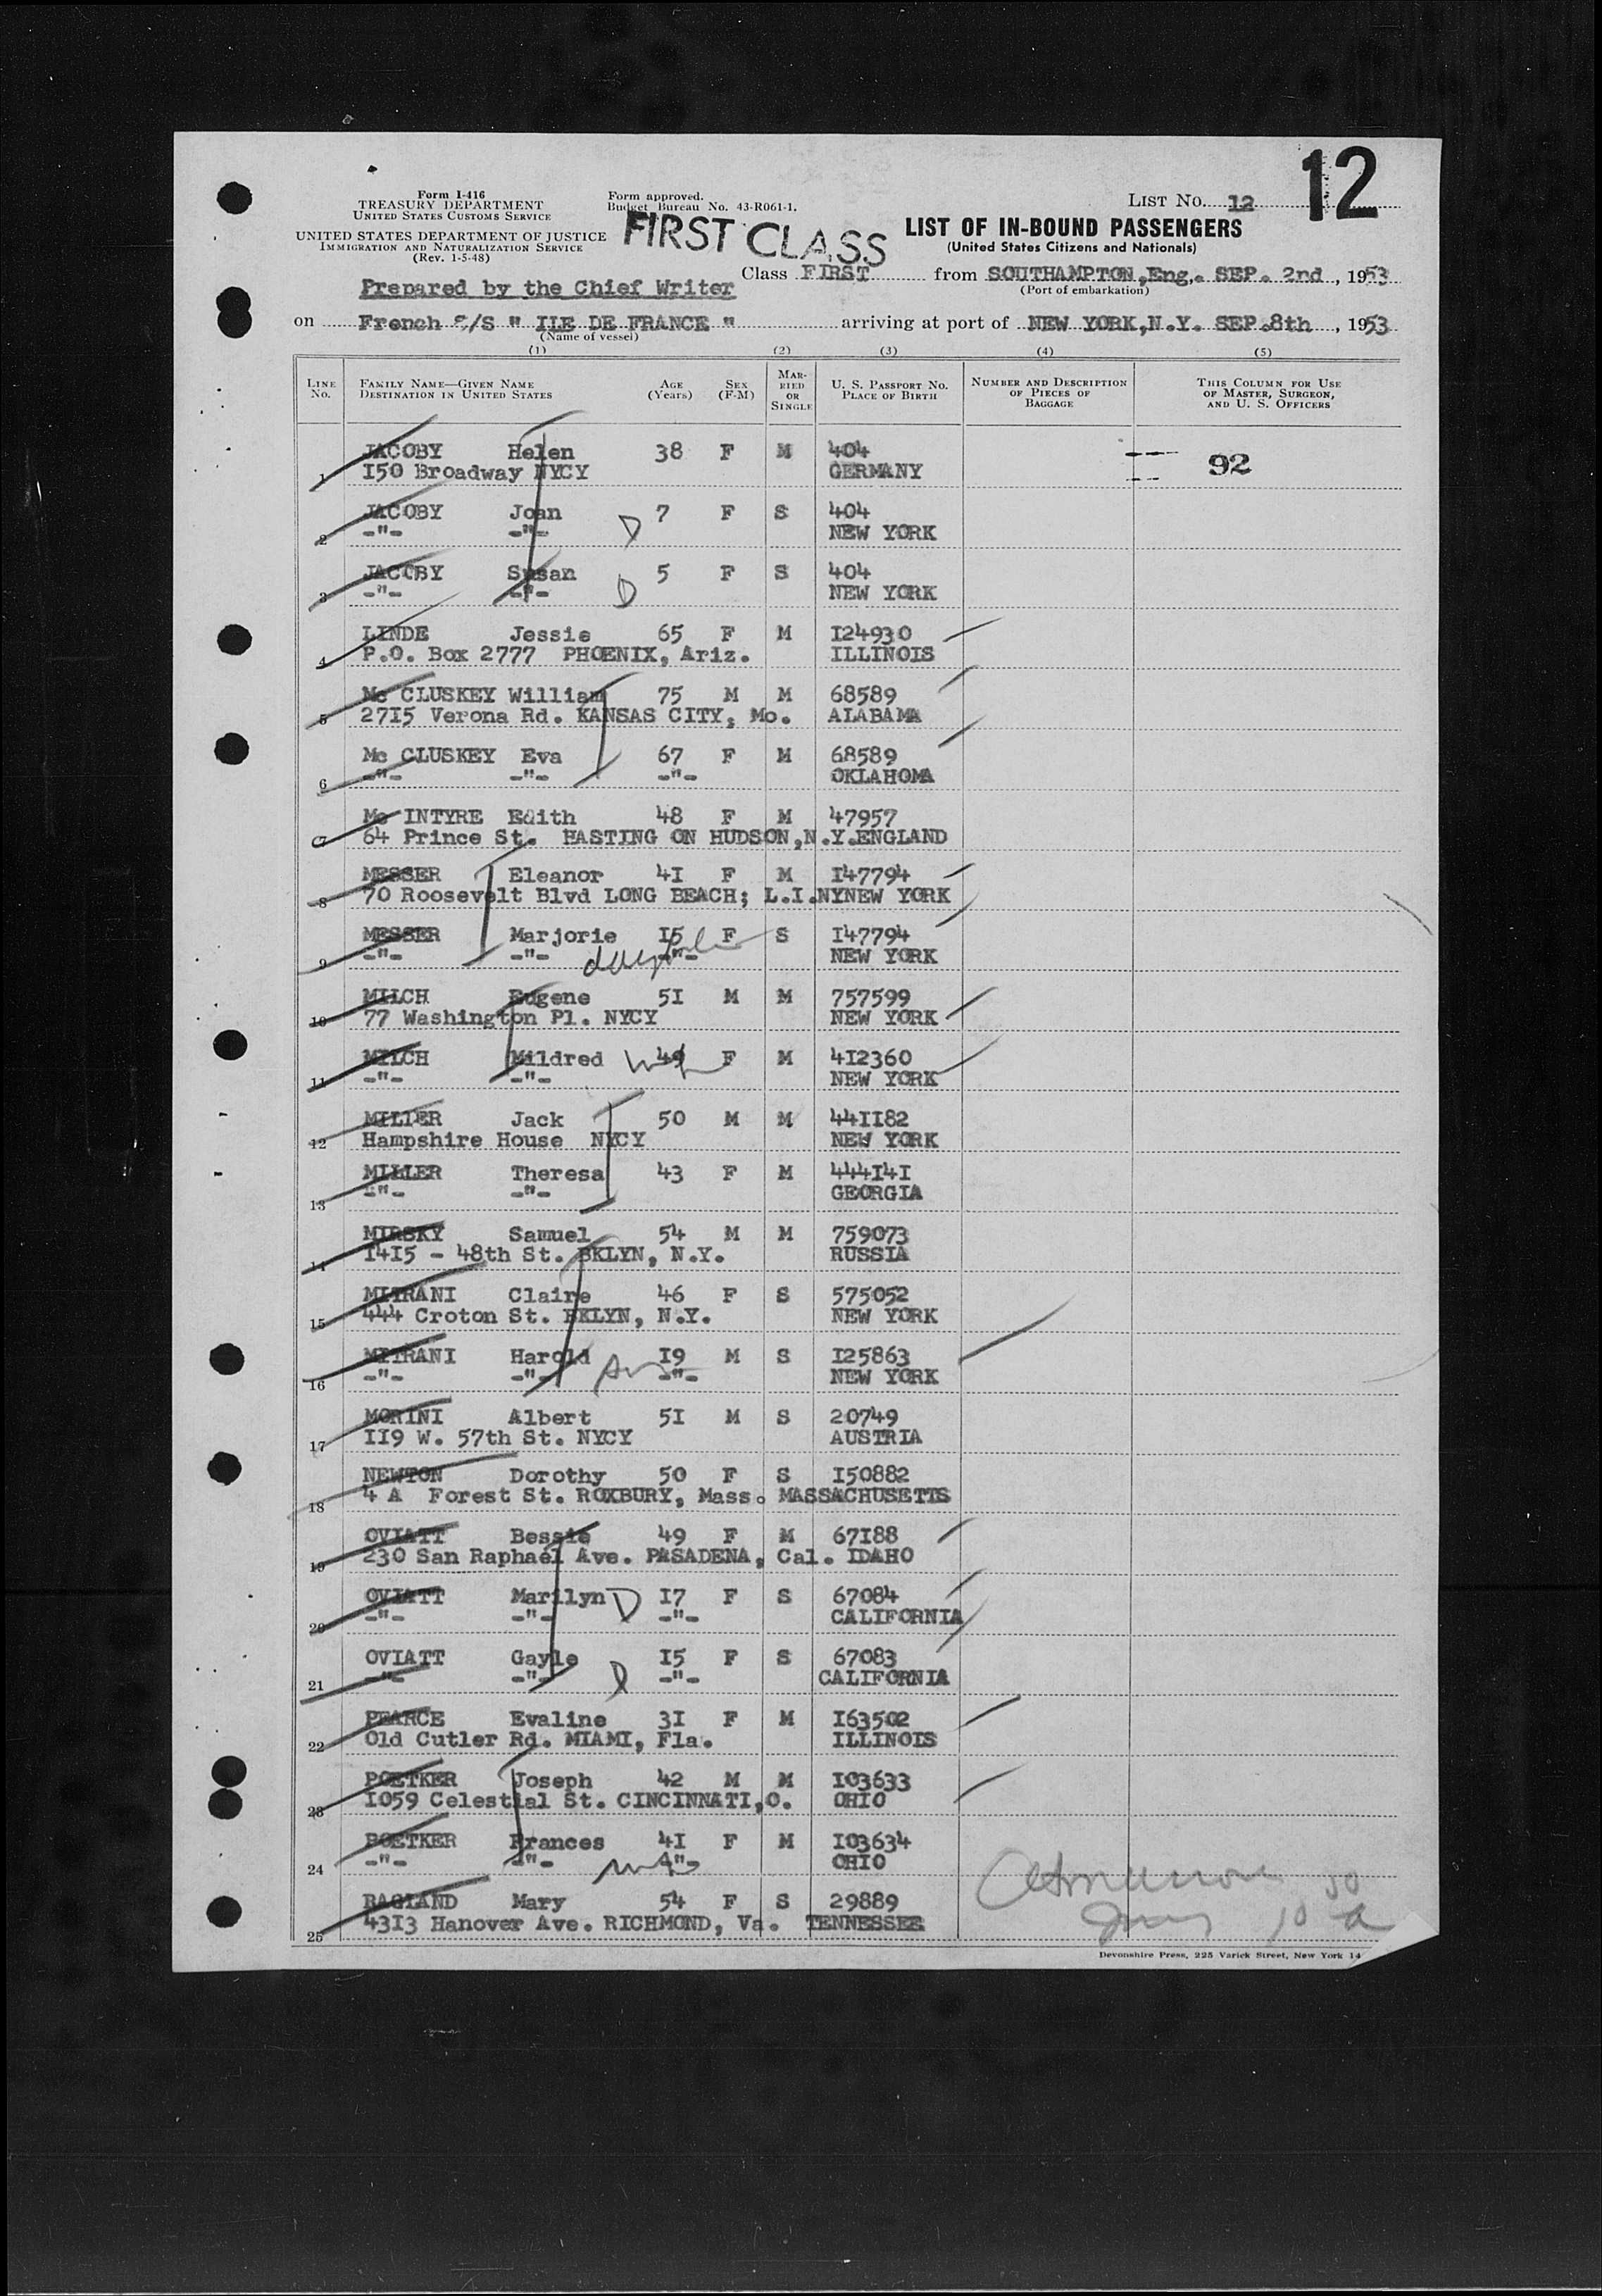 12
Form I-416
TREASURY DEPARTMENT
UNITED STATES CUSTOMS SERVICE
UNITED STATES DEPARTMENT OF JUSTICE
IMMIGRATION AND NATURALIZATION SERVICE
(Rev. 1-5-48)
Form approved.
Budget Bureau No. 43-R061-1.
FIRST CLASS
LIST No. 12
LIST OF IN-BOUND PASSENGERS
(United States Citizens and Nationals)
Prepared by the Chief Writer
Class FIRST from SOUTHAMPTON,Eng,. SEP. 2nd, 1953
(Port of embarkation)
on French S/S " ILE DE FRANCE " arriving at port of NEW YORK,N.Y. SEP.8th, 1953
(Name of vessel)
(1) (2) (3) (4) (5)
LINE No. FAMILY NAME—GIVEN NAME DESTINATION IN UNITED STATES AGE (Years) SEX (F-M) MARRIED OR SINGLE U. S. PASSPORT NO. PLACE OF BIRTH NUMBER AND DESCRIPTION OF PIECES OF BAGGAGE THIS COLUMN FOR USE OF MASTER, SURGEON, AND U. S. OFFICERS
JACOBY Helen 38 F M 404 92
1 I50 Broadway NYCY GERMANY
JACOBY Joan D 7 F S 404
2 -"- -"- NEW YORK
JACOBY Susan D 5 F S 404
3 -"- -"- NEW YORK
LINDE Jessie 65 F M I24930
4 P.O. Box 2777 PHOENIX, Ariz. ILLINOIS
Mc CLUSKEY William 75 M M 68589
5 27I5 Verona Rd. KANSAS CITY, Mo. ALABAMA
Mc CLUSKEY Eva 67 F M 68589
6 -"- -"- -"- OKLAHOMA
Mc INTYRE Edith 48 F M 47957
7 64 Prince St. HASTING ON HUDSON,N.Y.ENGLAND
MESSER Eleanor 4I F M I47794
8 70 Roosevelt Blvd LONG BEACH; L.I.NYNEW YORK
MESSER Marjorie I5 F S I47794
9 -"- -"- daughter -"- NEW YORK
MILCH Eugene 5I M M 757599
10 77 Washington Pl. NYCY NEW YORK
MILCH Mildred wife 49 F M 4I2360
11 -"- -"- NEW YORK
MILLER Jack 50 M M 44II82
12 Hampshire House NYCY NEW YORK
MILLER Theresa 43 F M 444I4I
13 -"- -"- GEORGIA
MIRSKY Samuel 54 M M 759073
14 I4I5 - 48th St. BKLYN, N.Y. RUSSIA
MITRANI Claire 46 F S 575052
15 444 Croton St. BKLYN, N.Y. NEW YORK
MITRANI Harold I9 M S I25863
16 -"- -"- -"- NEW YORK
MORINI Albert 5I M S 20749
17 II9 W. 57th St. NYCY AUSTRIA
NEWTON Dorothy 50 F S I50882
18 4 A Forest St. ROXBURY, Mass. MASSACHUSETTS
OVIATT Bessie 49 F M 67I88
19 230 San Raphaél Ave. PASADENA, Cal. IDAHO
OVIATT Marilyn D I7 F S 67084
20 -"- -"- -"- CALIFORNIA
OVIATT Gayle D I5 F S 67083
21 -"- -"- -"- CALIFORNIA
PEARCE Evaline 3I F M I63502
22 Old Cutler Rd. MIAMI, Fla. ILLINOIS
POETKER Joseph 42 M M I03633
23 I059 Celestial St. CINCINNATI,O. OHIO
POETKER Frances 4I F M I03634
24 -"- -"- wife -"- OHIO
RAGLAND Mary 54 F S 29889
25 43I3 Hanover Ave. RICHMOND, Va. TENNESSEE
Devonshire Press, 225 Varick Street, New York 14